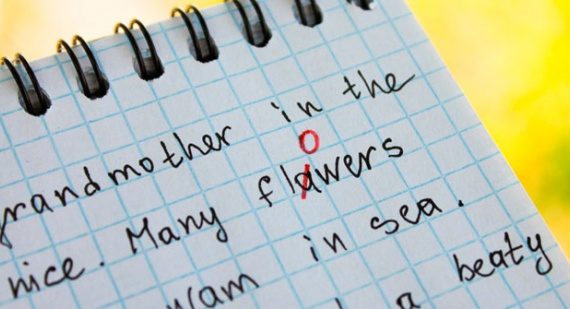 grandmother in the
o
nice. Many flawers
in sea.
a beaty